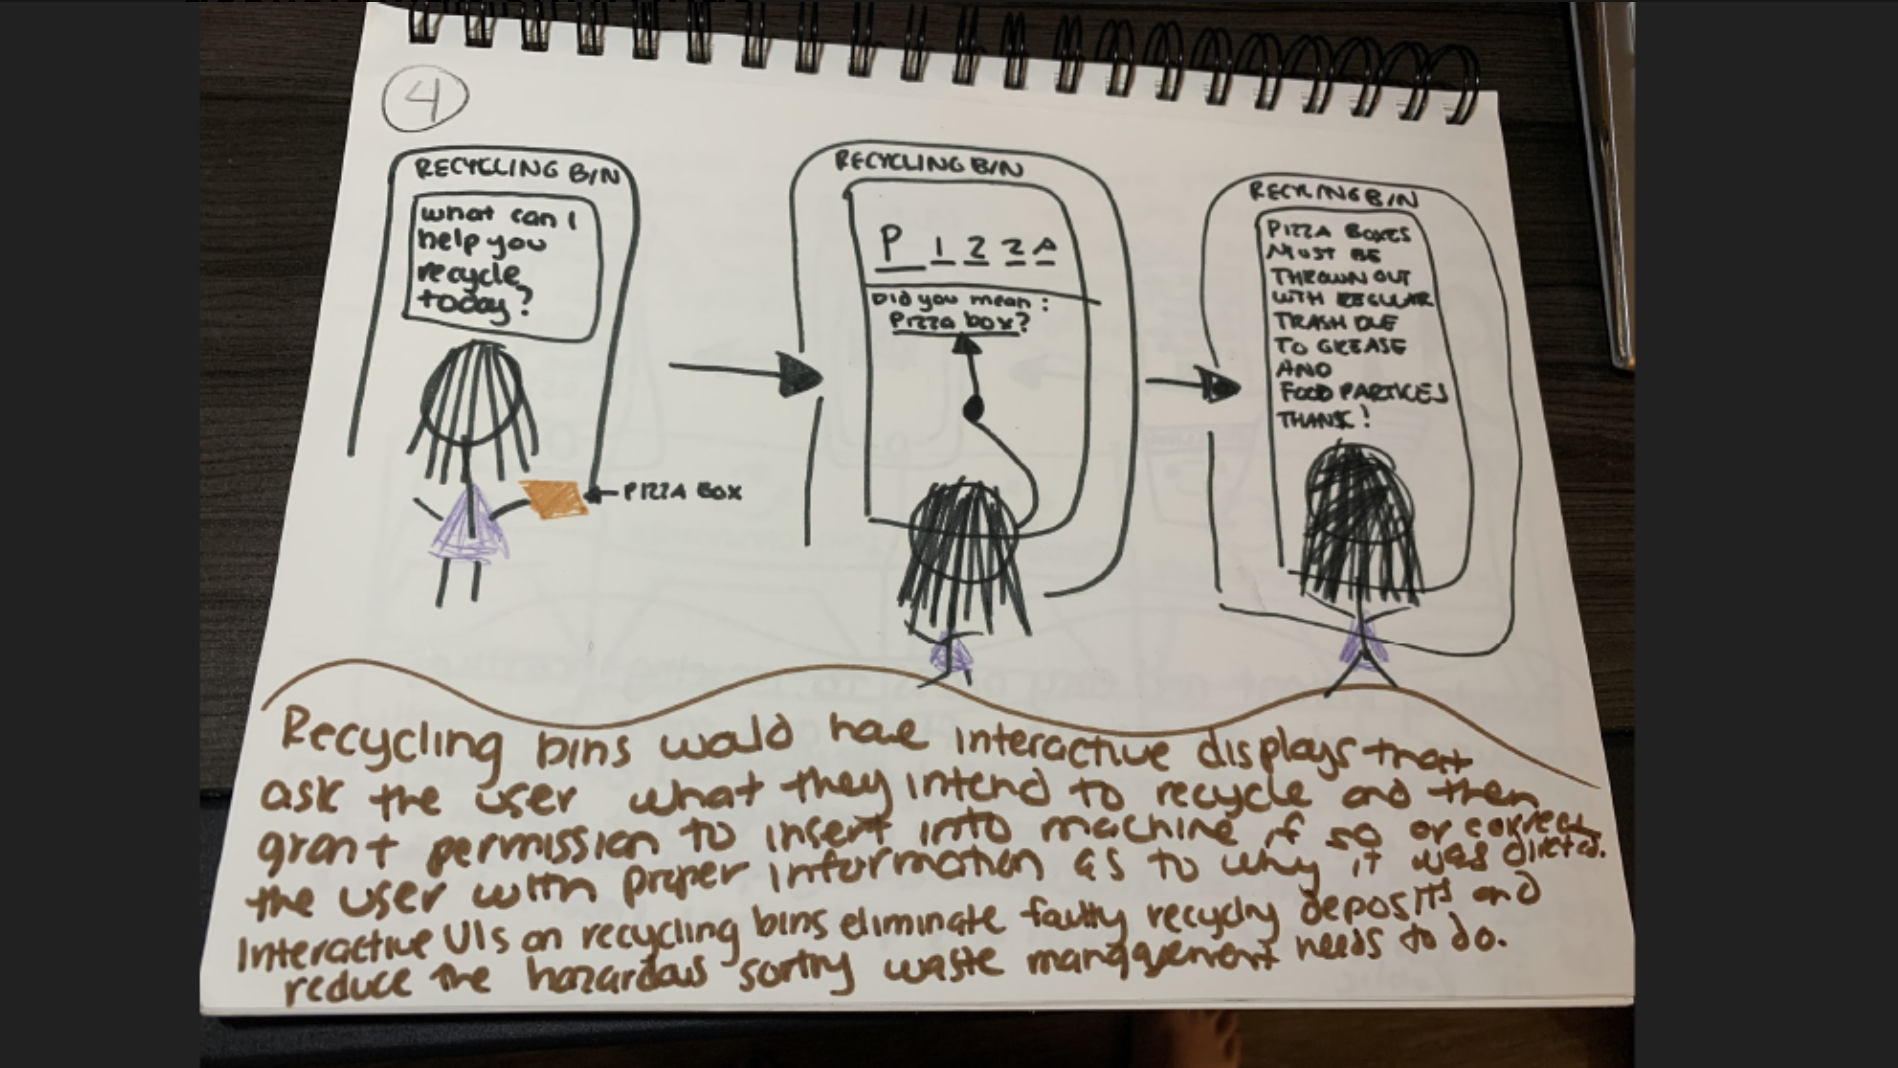 4
RECYCLING BIN
what can I
help you
recycle
today?
PIZZA BOX
RECYCLING BIN
P I Z Z A
Did you mean:
Pizza box?
RECYCLING BIN
PIZZA BOXES
MUST BE
THROWN OUT
WITH REGULAR
TRASH DUE
TO GREASE
AND
FOOD PARTICES
THANK!
Recycling bins would have interactive displays that
ask the user what they intend to recycle and then
grant permission to insert into machine if so or correct
the user with proper information as to why it was
Interactive UIs on recycling bins eliminate faulty recyclng deposits and
reduce the hazardous sorting waste management needs to do.